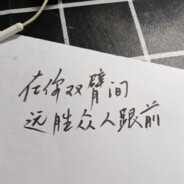 在你双臂间
远胜众人跟前